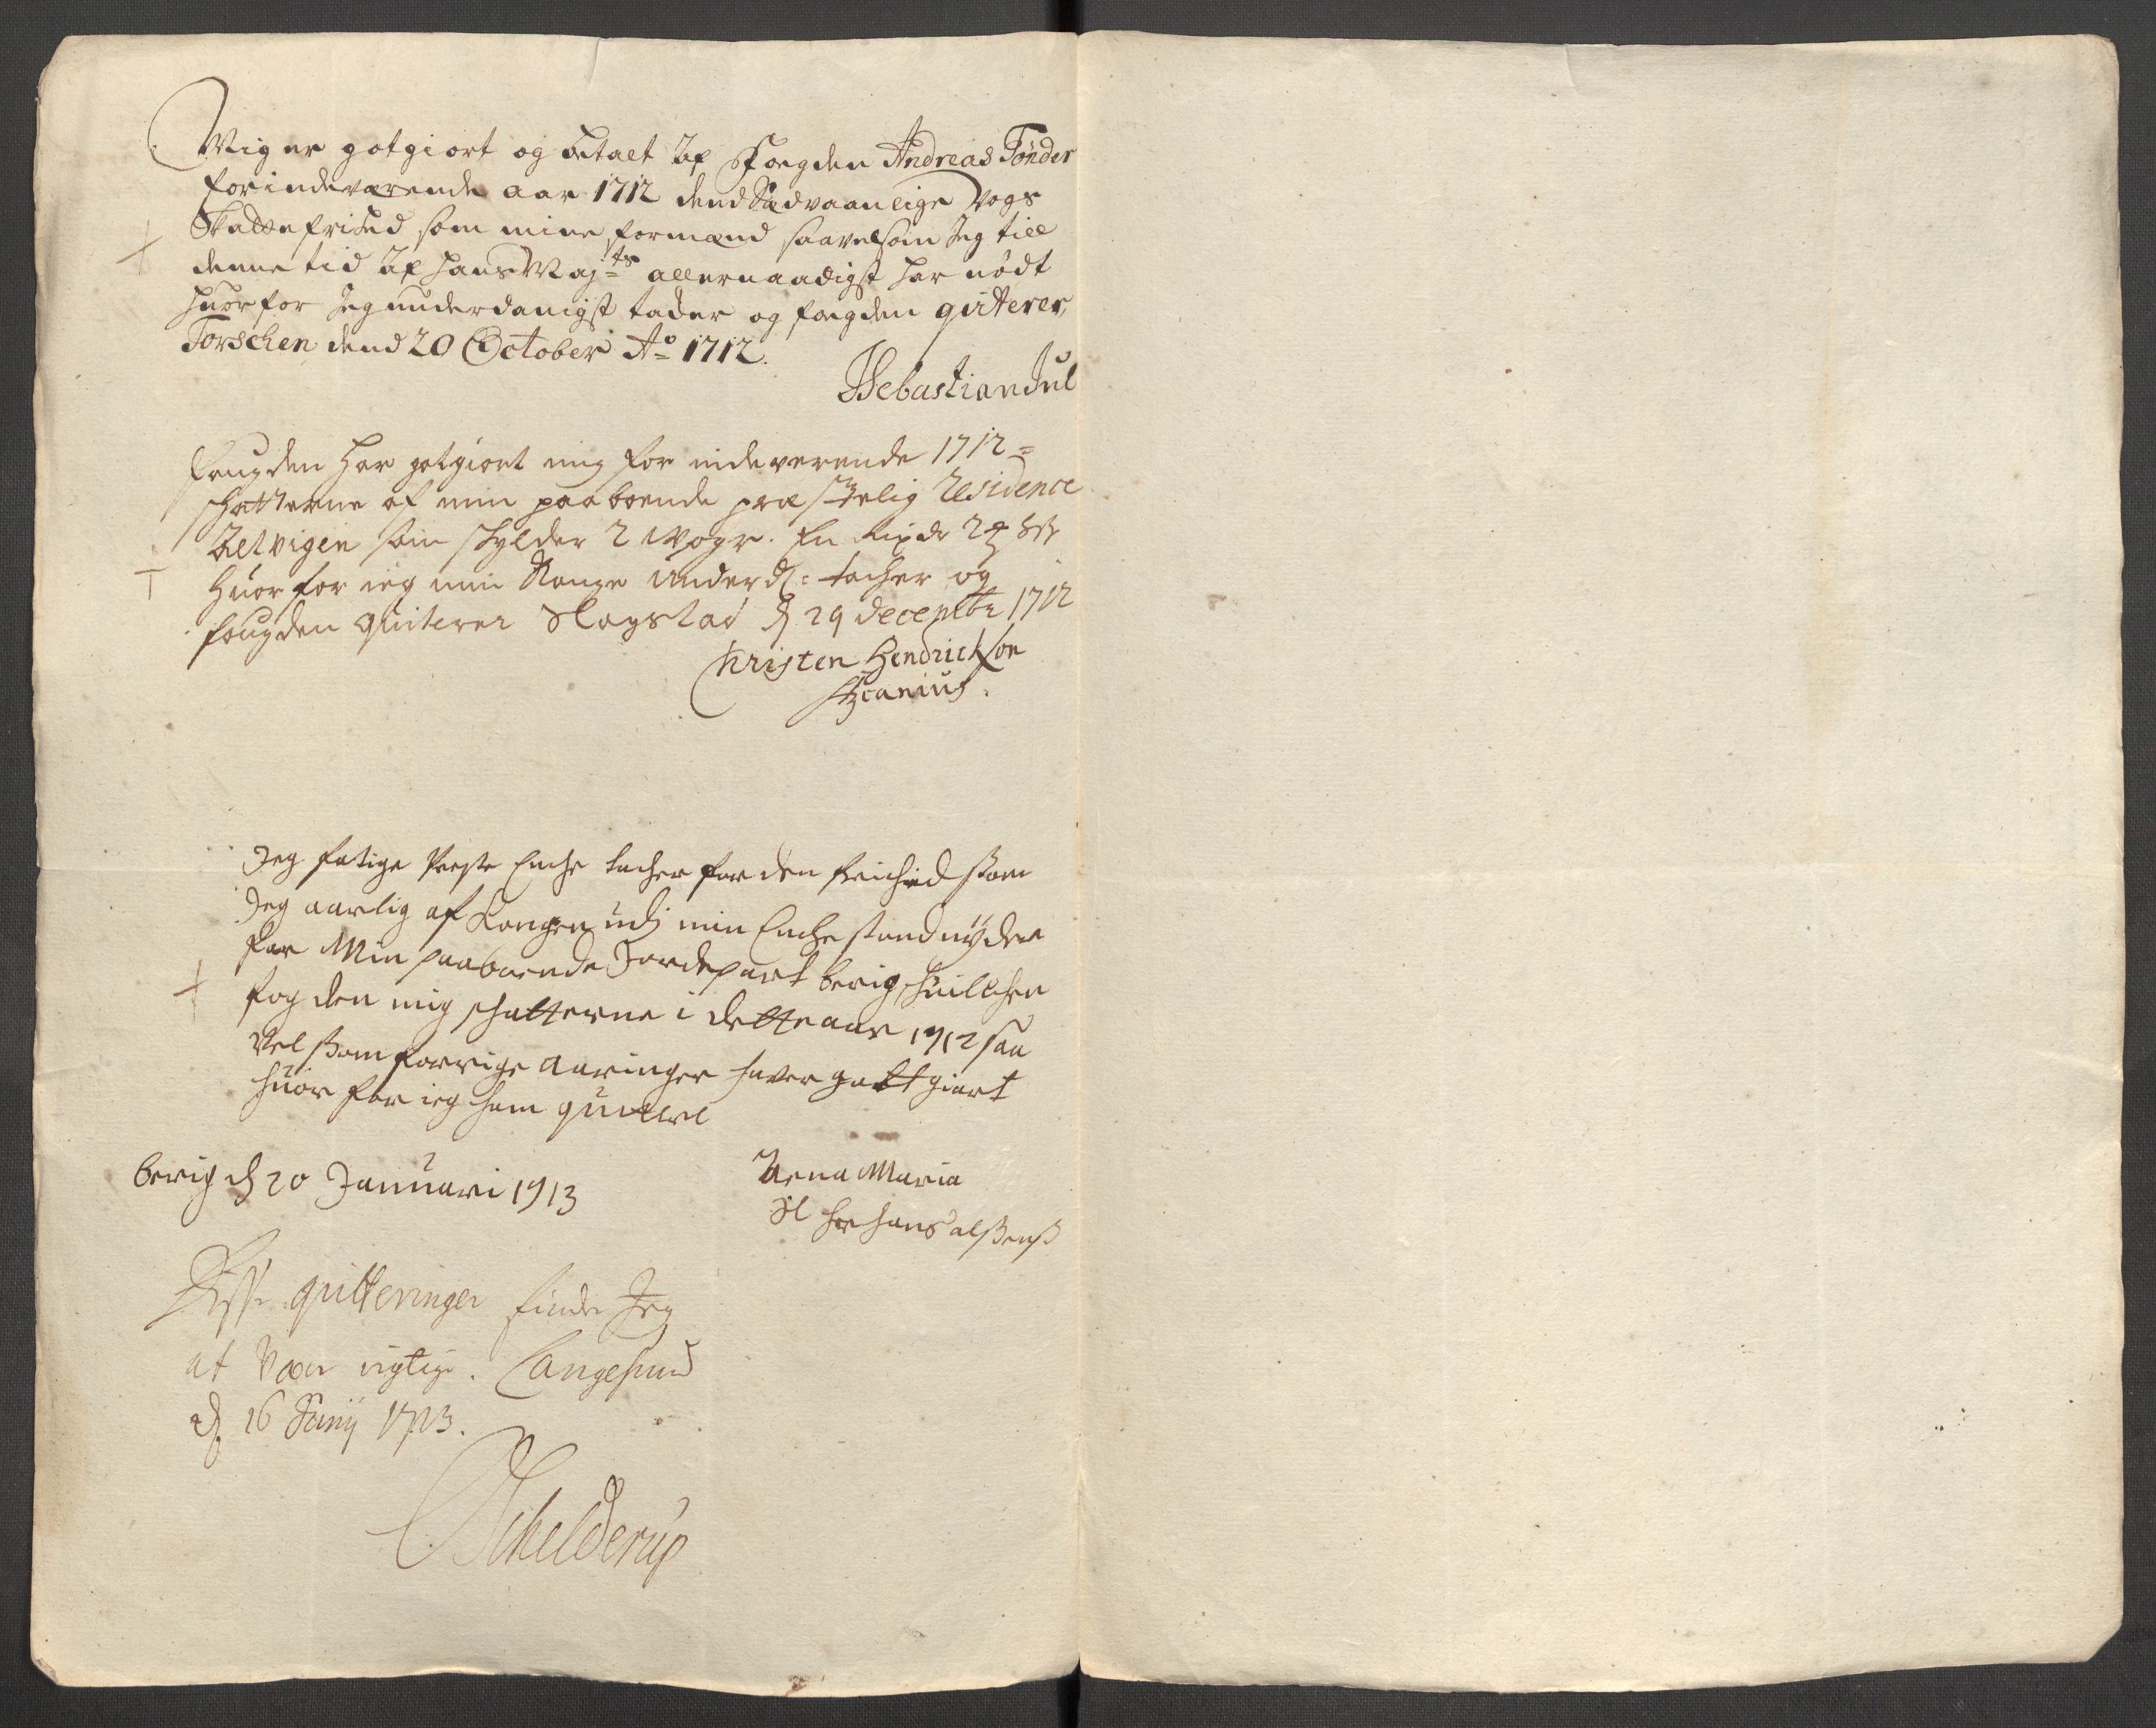 Mig er gotgiort og betalt af Fogden Andreas Tønder
for indeværende aar 1712 dend Sædvaanlige Vogs
Skattefrihed som mine formænd saavelsom Jeg till
denne tid af hans Maj:ts allernaadigst har nødt
huorfor Jeg underdanigst tacker og fogden qvitterer,
Torschen dend 20 October Ao 1712.
Sebastian Jul
Fougden har gotgiort mig for indeverende 1712 =
schatterne af min paaboende præstelig Residence
som skylder 2 Woger.
huorfor ieg min Konge underd: tacher og
fougden quiterer Klogstad d 29 decembr 1712
Christen Hendrickson
Jeg fatige Preste Enche tacher for den friehed som
Jeg aarlig af Kongen udj min Enche stand nyder
for Min paaboende Jordepart berig, huilchen
fogden mig schatterne i dette aar 1712 saa
vel som forrige aaringer haver gottgiort
huorfor ieg ham quiterer
berig d 20 Januari 1713
Anna Maria
Sl Hr Hans
Disse qvitteringer finder Jeg
at være rigtige. Langesund
d. 16 Junij 1713.
Schelderup